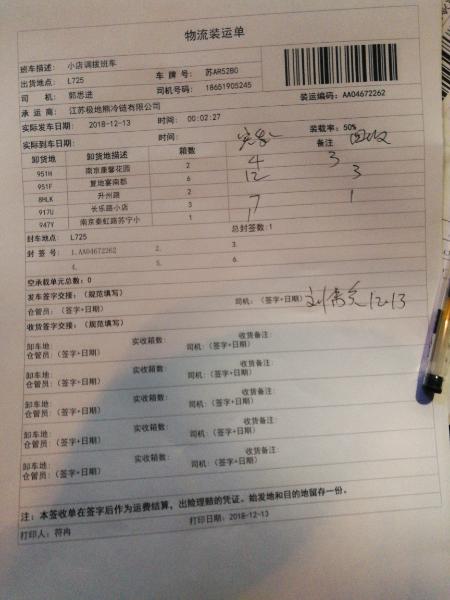 物流装运单
班车描述: 小店调拨班车
出货地点: L725 车 牌 号: 苏AR52B0
司 机: 郭思进 司机号码: 18651905245
承 运 商: 江苏极地熊冷链有限公司 装运编码: AA04672262
实际发车日期: 2018-12-13 时间: 00:02:27
实际到车日期: 时间: 装载率: 50%
卸货地 卸货地描述 箱数 备注 回收
951H 南京康馨花园 2 4 3
951F 复地宴南都 6 12 3
8HLK 升州路 2 1
917U 长乐路小店 3 7
947Y 南京秦虹路苏宁小 1 1
封车地点: L725 总封签数:1
封 签 号: 1.AA04672262 2. 3.
4. 5. 6.
空承载单元总数: 0
发车签字交接: (规范填写)
仓管员: (签字+日期) 司机: (签字+日期) 12.13
收货签字交接: (规范填写)
卸车地: 实收箱数: 收货备注:
仓管员: (签字+日期) 司机: (签字+日期)
卸车地: 实收箱数: 收货备注:
仓管员: (签字+日期) 司机: (签字+日期)
卸车地: 实收箱数: 收货备注:
仓管员: (签字+日期) 司机: (签字+日期)
卸车地: 实收箱数: 收货备注:
仓管员: (签字+日期) 司机: (签字+日期)
卸车地: 实收箱数: 收货备注:
仓管员: (签字+日期) 司机: (签字+日期)
注: 本签收单在签字后作为运费结算, 出险理赔的凭证。始发地和目的地留存一份。
打印人: 符冉 打印日期: 2018-12-13